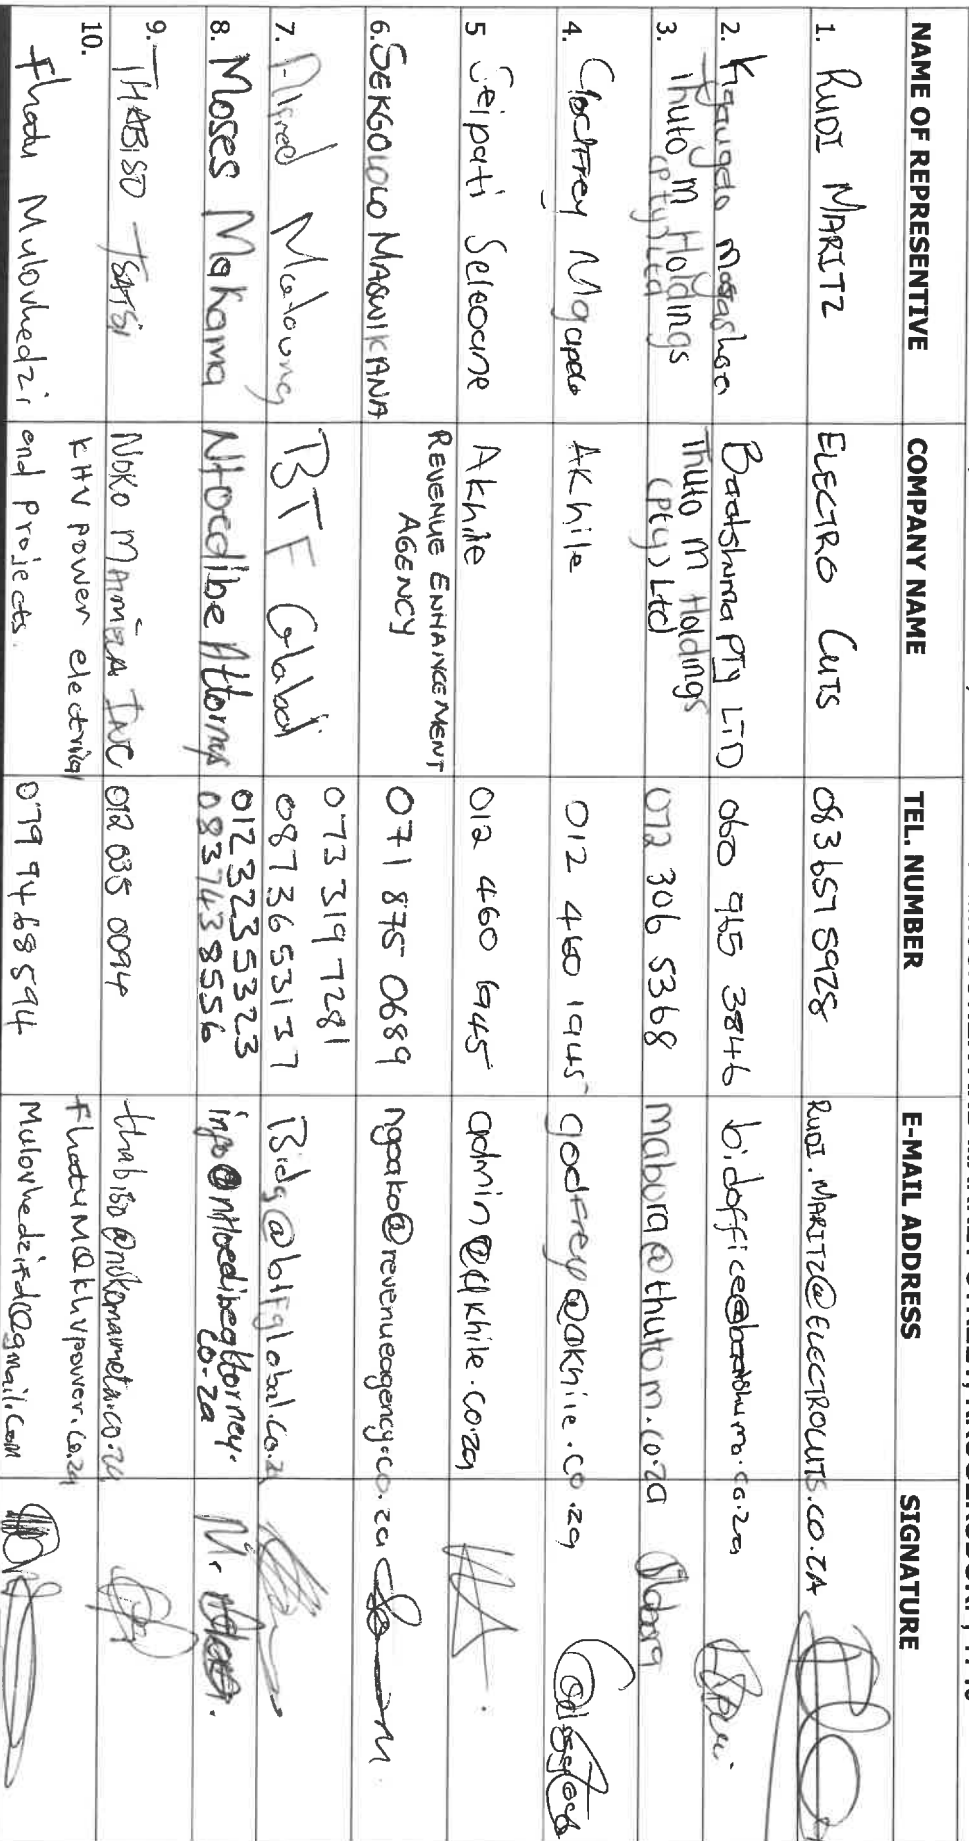 NAME OF REPRESENTIVE COMPANY NAME TEL. NUMBER E-MAIL ADDRESS SIGNATURE
1. RUDI MARITZ ELECTRO CUTS 083 657 5928 RUDI.MARITZ@ELECTROCUTS.CO.ZA
2. Kgaugelo mogashoa Baatshuma PTY LTD 060 965 3846 bidoffice@baatshuma.co.za
3. Thuto m Holdings Thuto m Holdings 072 306 5368 mabora@thutom.co.za
(pty) Ltd (pty) Ltd
4. Mgapelo Akhile 012 460 1945 godfrey@akhile.co.za
5 Seipati Seleoane Akhile 012 460 1945 admin@akhile.co.za
6. SEKGOLOLO MASWIKANA REVENUE ENHANCEMENT AGENCY 071 875 0689 ngoako@revenueagency.co.za
073 319 7281
7. Alfred Malounq BTF Global 0873653137 Bids@btfglobal.co.za
8. Moses Makama Ntoedibe Attorneys 0123235323 info@ntoedibeattorney.
0837438556 co.za
9. THABISO TSATSI NOKO MAIMELA INC 012 035 0094 thabiso@nokomaimela.co.za
10. KHV power electrical fhatuM@khvpower.co.za
Fhatu Mulovhedzi and projects. 079 9468594 Mulovhedzifd@gmail.com